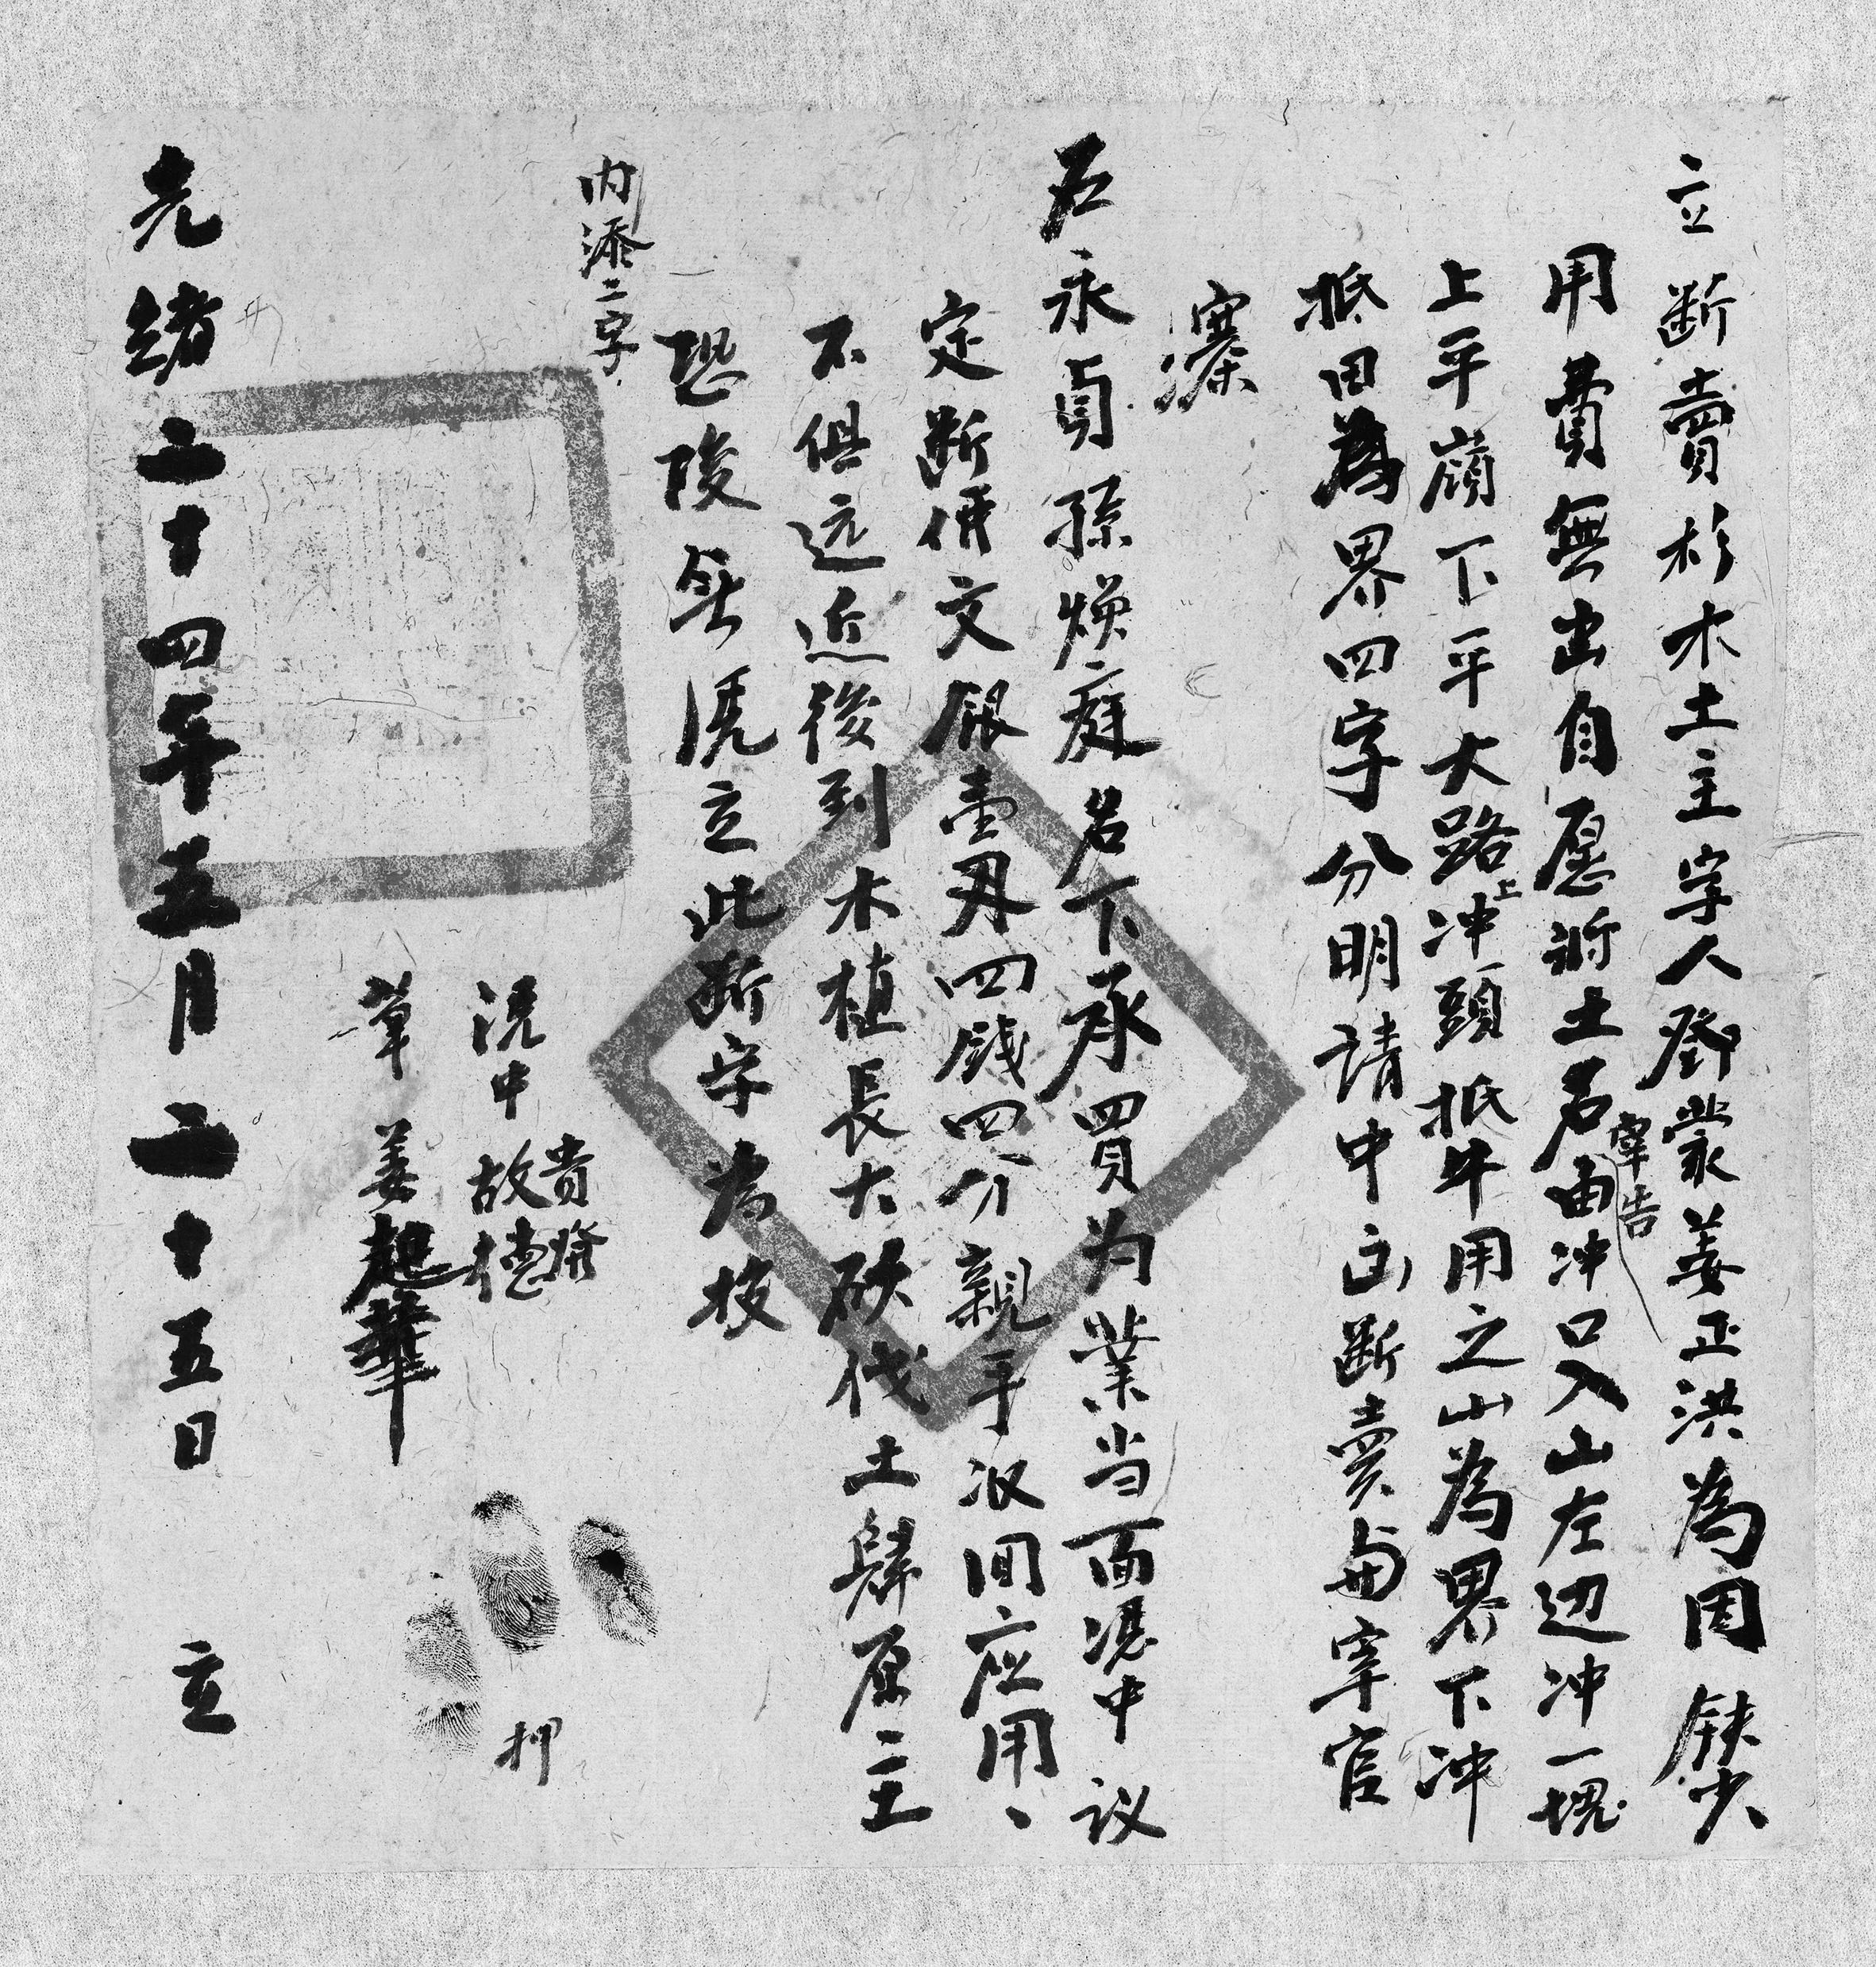 立断賣杉木土主字人鄧蒙姜正洪為因缺少
宰告
用費無出自愿將土名由冲口入山左边冲一塊
上平嶺下平大路上冲頭抵牛用之山為界下冲
抵田為界四字分明請中出断賣與宰官
寨
石永貞孫煥庭名下承買为業当面憑中议
定断價文銀壹两四錢四分親手收回应用、
不俱远近後到木植長大砍伐土歸原主
恐後無凭立此断字為
内添二字
凭中貴發
故德
筆姜起華
押
光緒二十四年五月二十五日立